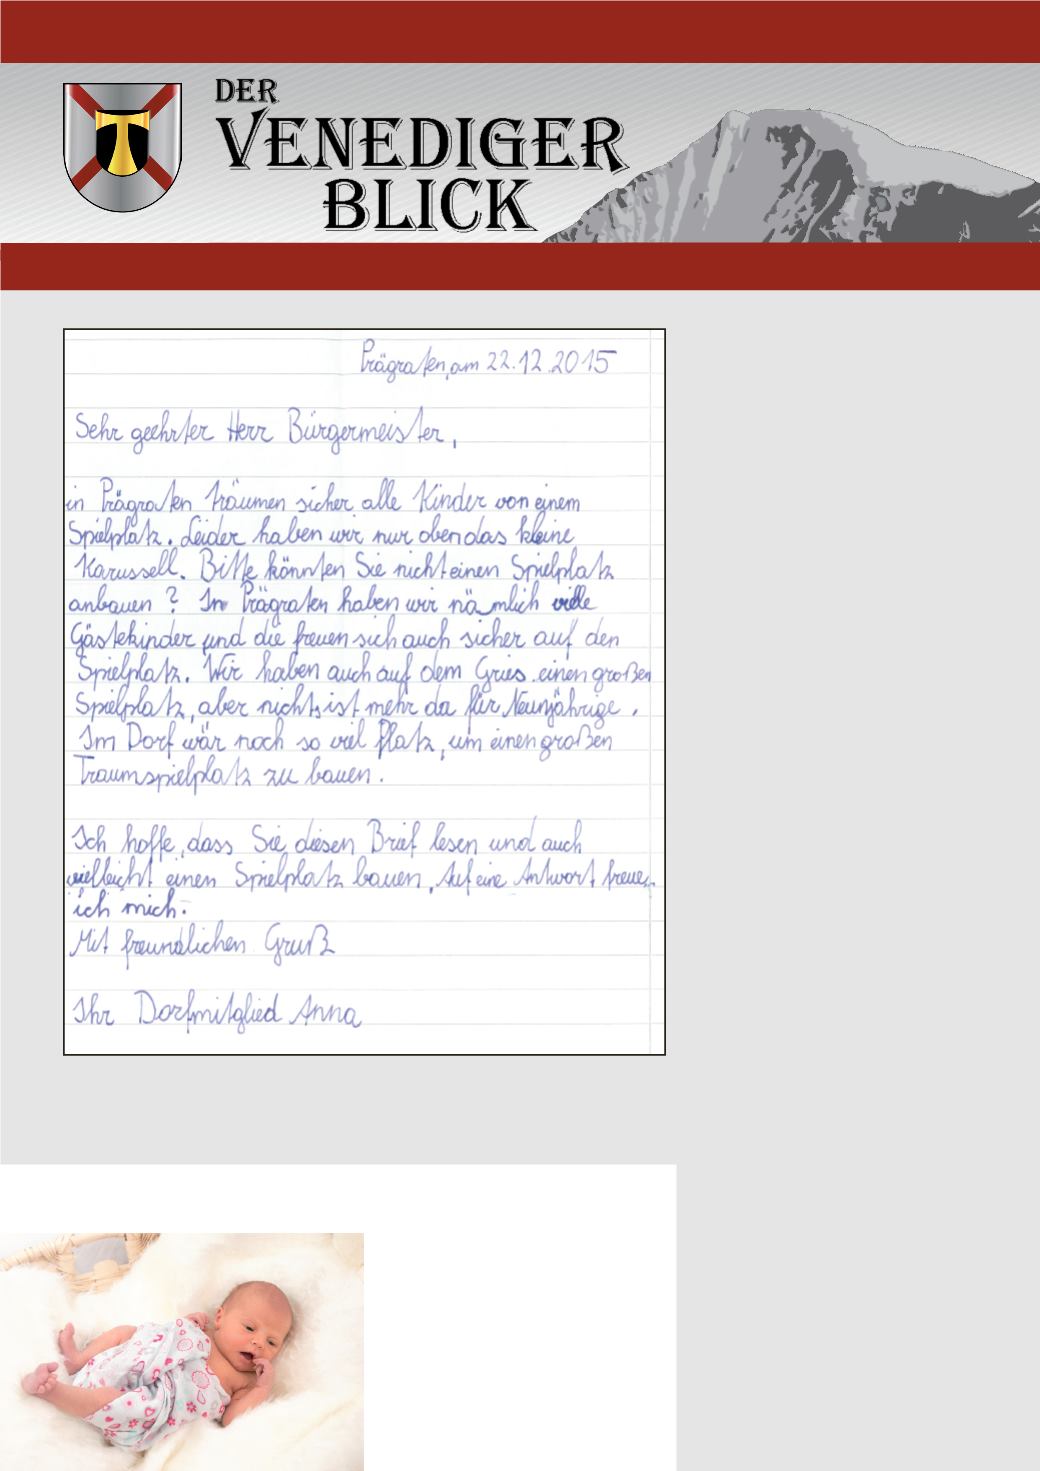 DER
VENEDIGER
BLICK
Prägraten, am 22.12.2015
Sehr geehrter Herr Bürgermeister,
in Prägraten träumen sicher alle Kinder von einem
Spielplatz. Leider haben wir nur oben das kleine
Karussell. Bitte könnten Sie nicht einen Spielplatz
anbauen? In Prägraten haben wir nämlich viele
Gästekinder und die freuen sich auch sicher auf den
Spielplatz. Wir haben auch auf dem Gries einen großen
Spielplatz, aber nichts ist mehr da für Neunjährige.
Im Dorf wär noch so viel Platz, um einen großen
Traumspielplatz zu bauen.
Ich hoffe, dass Sie diesen Brief lesen und auch
vielleicht einen Spielplatz bauen. Auf eine Antwort freue
ich mich.
Mit freundlichen Gruß
Ihr Dorfmitglied Anna